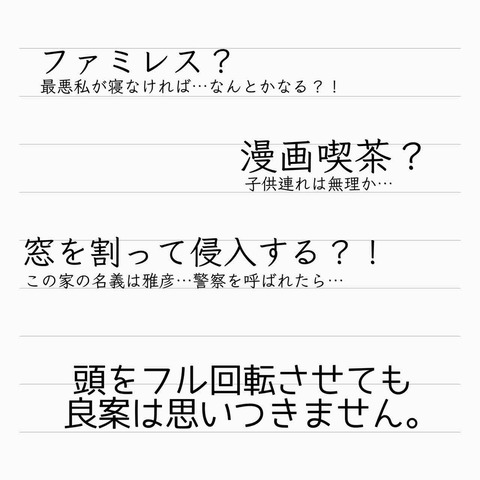 ファミレス？
最悪私が寝なければ…なんとかなる？！
漫画喫茶？
子供連れは無理か…
窓を割って侵入する？！
この家の名義は雅彦…警察を呼ばれたら…
頭をフル回転させても
良案は思いつきません。